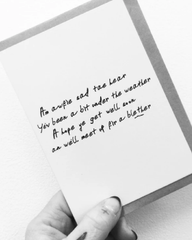 Am awfie sad tae hear
You've been a bit under the weather
A hope ye get well soon
an we'll meet up fir a blether